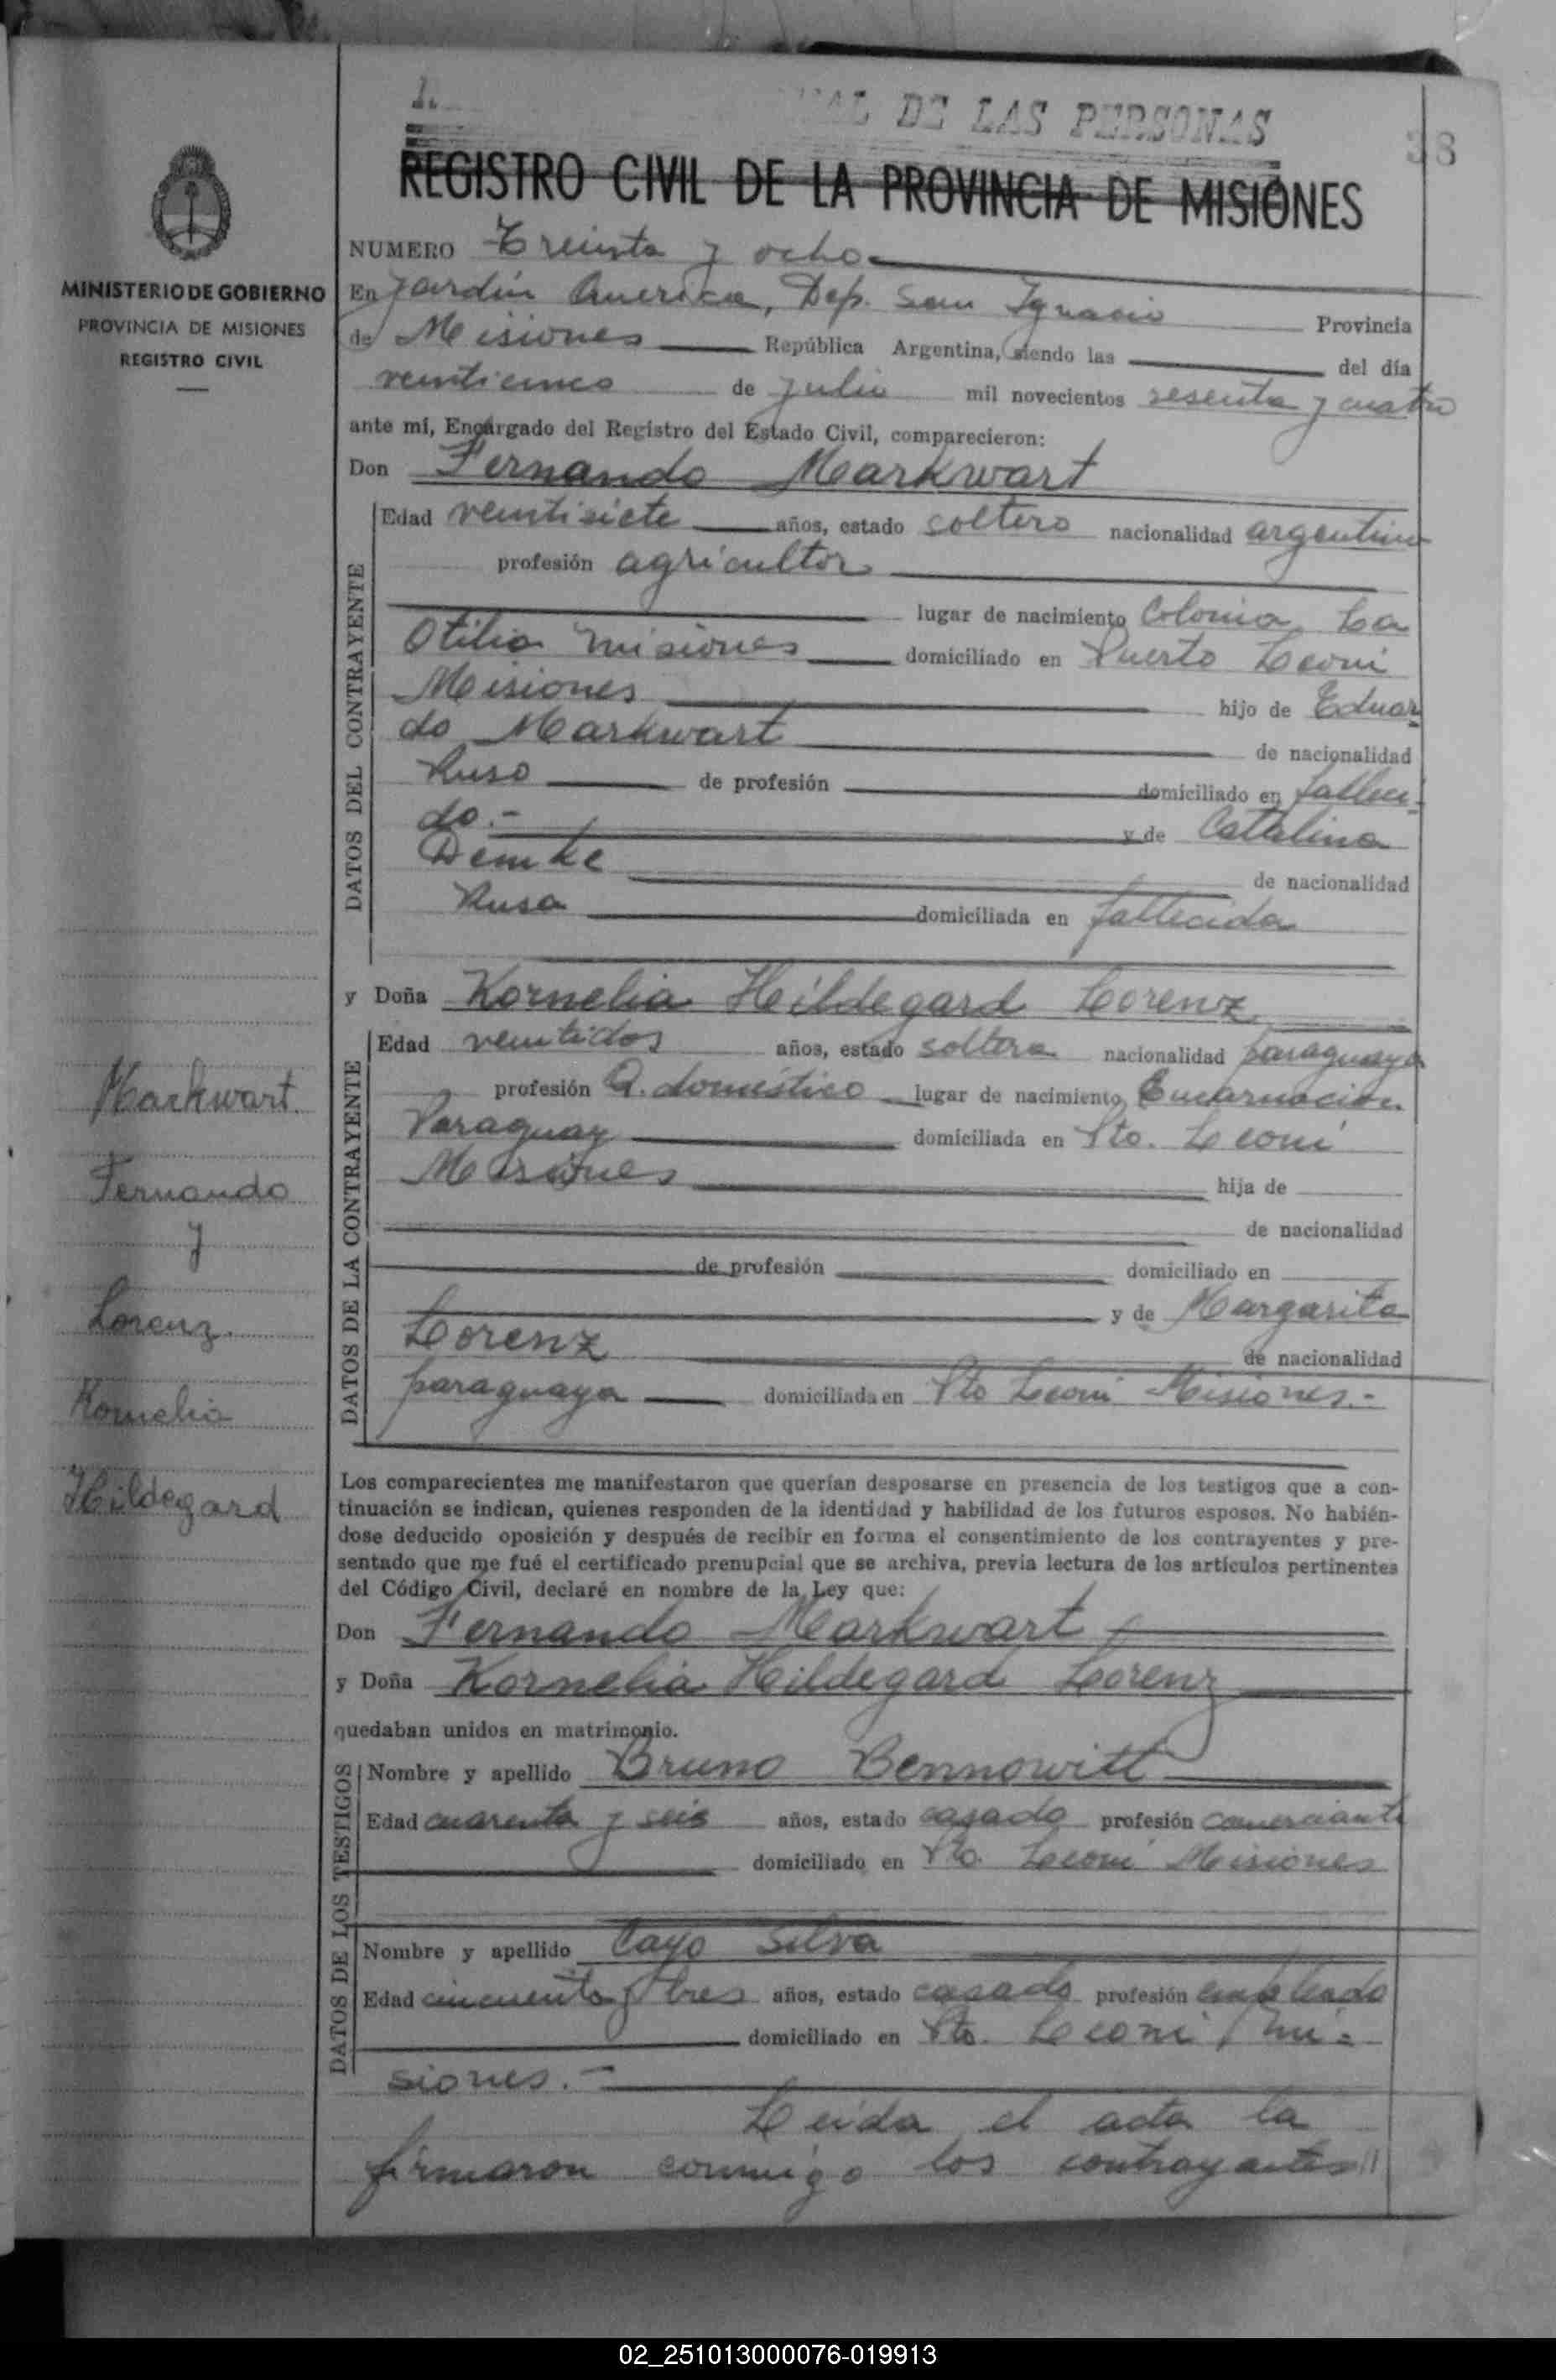 AL DE LAS PERSONAS
38
REGISTRO CIVIL DE LA PROVINCIA DE MISIONES
MINISTERIO DE GOBIERNO
PROVINCIA DE MISIONES
REGISTRO CIVIL
Markwart
Fernando
y
Lorenz
Kornelia
Hildegard
NUMERO Treinta y ocho
En Jardín America, Dep. San Ignacio Provincia
de Misiones República Argentina, siendo las del día
veinticinco de julio mil novecientos sesenta y cuatro
ante mí, Encargado del Registro del Estado Civil, comparecieron:
Don Fernando Markwart
DATOS DEL CONTRAYENTE
Edad veintisiete años, estado soltero nacionalidad argentino
profesión agricultor
lugar de nacimiento Colonia La
Otilia Misiones domiciliado en Puerto Leoni
Misiones hijo de Eduar
do Markwart de nacionalidad
Ruso de profesión domiciliado en falleci-
do.- y de Catalina
Demke de nacionalidad
Rusa domiciliada en fallecida
y Doña Kornelia Hildegard Lorenz
DATOS DE LA CONTRAYENTE
Edad veintidos años, estado soltera nacionalidad paraguaya
profesión Q. domestico lugar de nacimiento Encarnacion
Paraguay domiciliada en Pto. Leoni
Misiones hija de
de nacionalidad
de profesión domiciliado en
y de Margarita
Lorenz de nacionalidad
paraguaya domiciliada en Pto Leoni Misiones.-
Los comparecientes me manifestaron que querían desposarse en presencia de los testigos que a con-
tinuación se indican, quienes responden de la identidad y habilidad de los futuros esposos. No habién-
dose deducido oposición y después de recibir en forma el consentimiento de los contrayentes y pre-
sentado que me fué el certificado prenupcial que se archiva, previa lectura de los artículos pertinentes
del Código Civil, declaré en nombre de la Ley que:
Don Fernando Markwart
y Doña Kornelia Hildegard Lorenz
quedaban unidos en matrimonio.
DATOS DE LOS TESTIGOS
Nombre y apellido Bruno Bennowitt
Edad cuarenta y seis años, estado casado profesión comerciante
domiciliado en Pto. Leoni Misiones
Nombre y apellido Cayo Silva
Edad cincuenta y tres años, estado casado profesión empleado
domiciliado en Pto. Leoni Mi-
siones.-
Leida el acta la
firmaron conmigo los contrayentes//
02_251013000076-019913